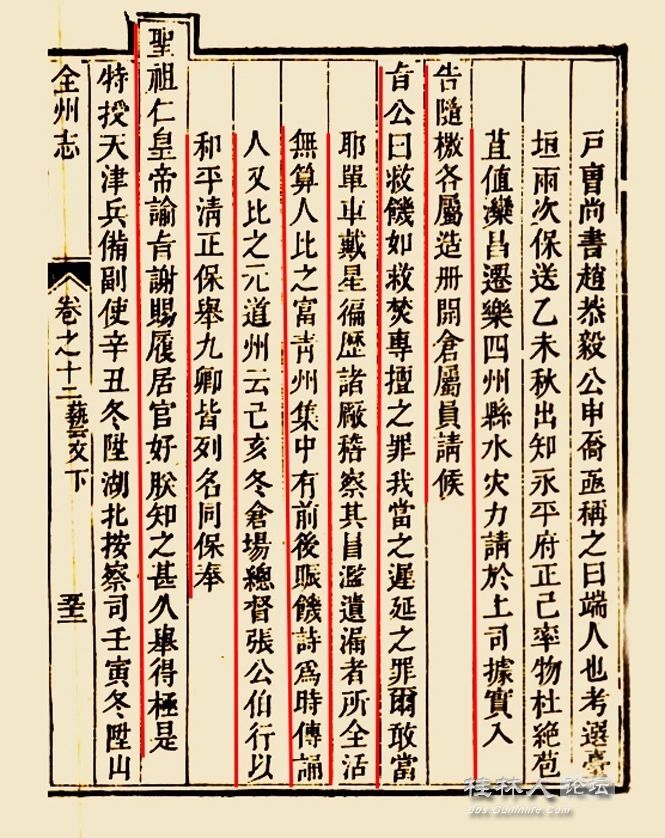 戶曹尚書趙恭毅公申喬亟稱之曰端人也考選臺
垣兩次保送乙未秋出知永平府正己率物杜絕苞
苴值灤昌遷樂四州縣水灾力請於上司據實入
告隨檄各屬造册開倉屬員請候
旨公曰救饑如救焚專擅之罪我當之遲延之罪爾敢當
耶單車戴星徧歷諸厰稽察其冒濫遺漏者所全活
無算人比之富青州集中有前後賑饑詩爲時傳誦
人又比之元道州云己亥冬倉場總督張公伯行以
和平清正保舉九卿皆列名同保奉
聖祖仁皇帝諭旨謝賜履居官好朕知之甚久舉得極是
特授天津兵備副使辛丑冬陞湖北按察司壬寅冬陞山
全州志
卷之十二藝文下
五十三
桂林人论坛
bbs.Guilinlife.com